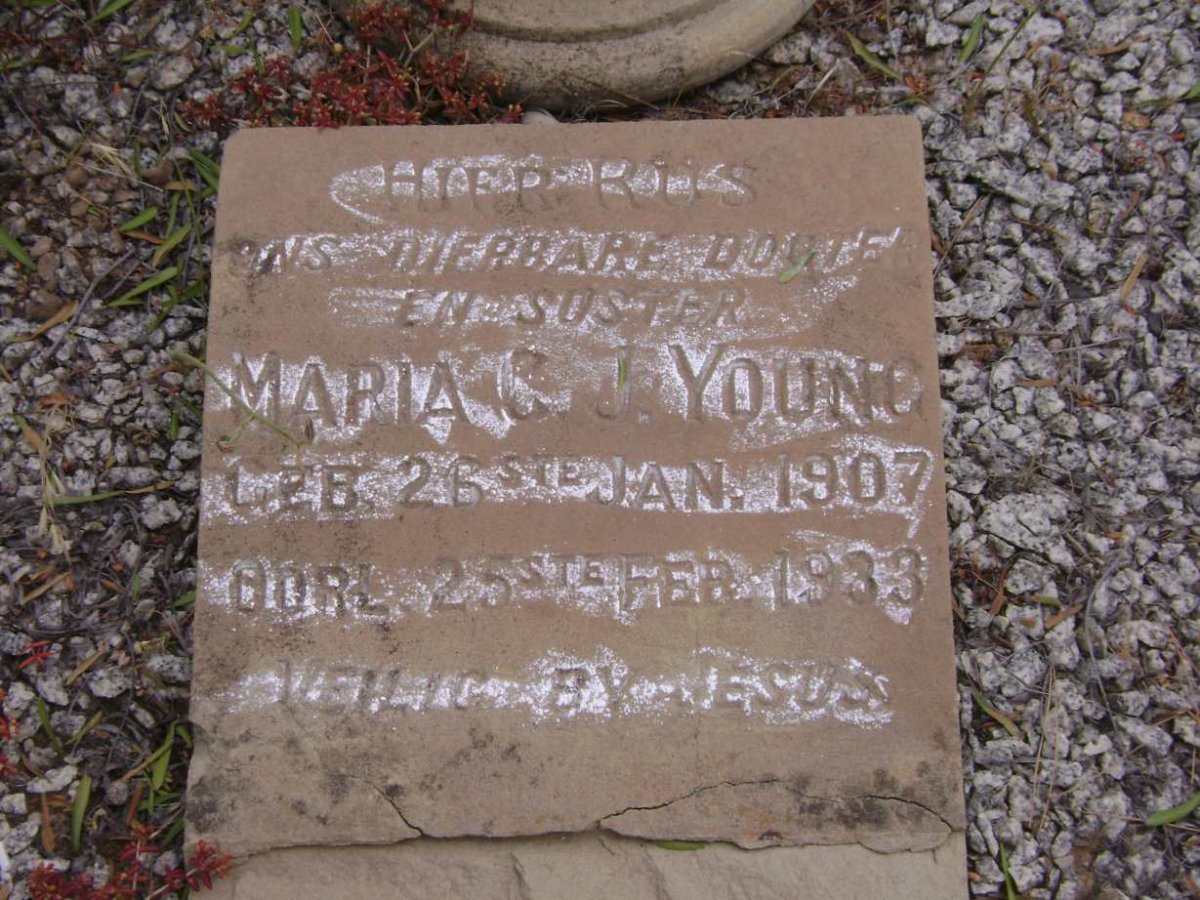 HIER RUS
ONS DIERBARE DOGTER
EN SUSTER
MARIA C. J. YOUNG
GEB. 26STE JAN. 1907
OORL. 25STE FEB. 1933
VEILIG BY JESUS